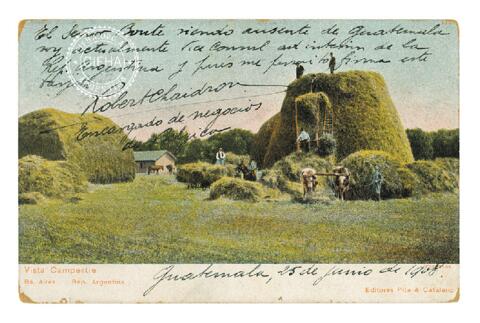 El Señor Conte siendo ausente de Guatemala
soy actualmente Vice Consul ad interim de la
Rep. Argentina y pues me permito firma este
Robert Chaidron
Encargado de negocios
de Belgica
Vista Campestre
Bs. Aires Rep. Argentina
Guatemala, 25 de junio de 1908.
Editores Pita & Catalano